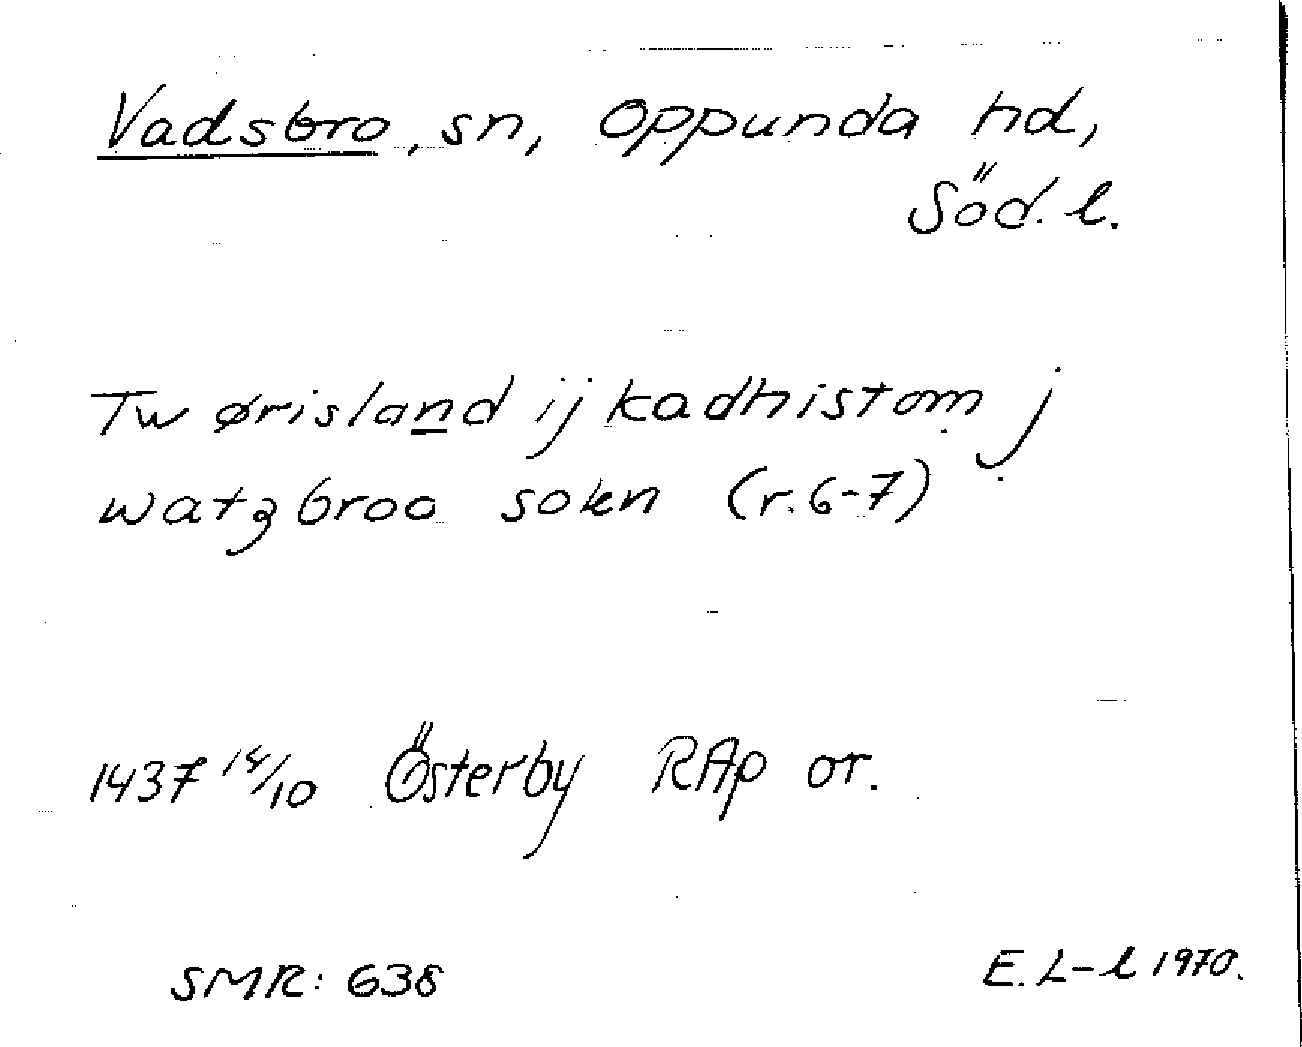 Vadsbro, sn, Oppunda hd,
Söd. l.
Tw ørisland ij kadhistom j
watzbroo sokn (r. 6-7)
1437 14/10 Österby RAp or.
SMR: 638
E. L-l 1970.